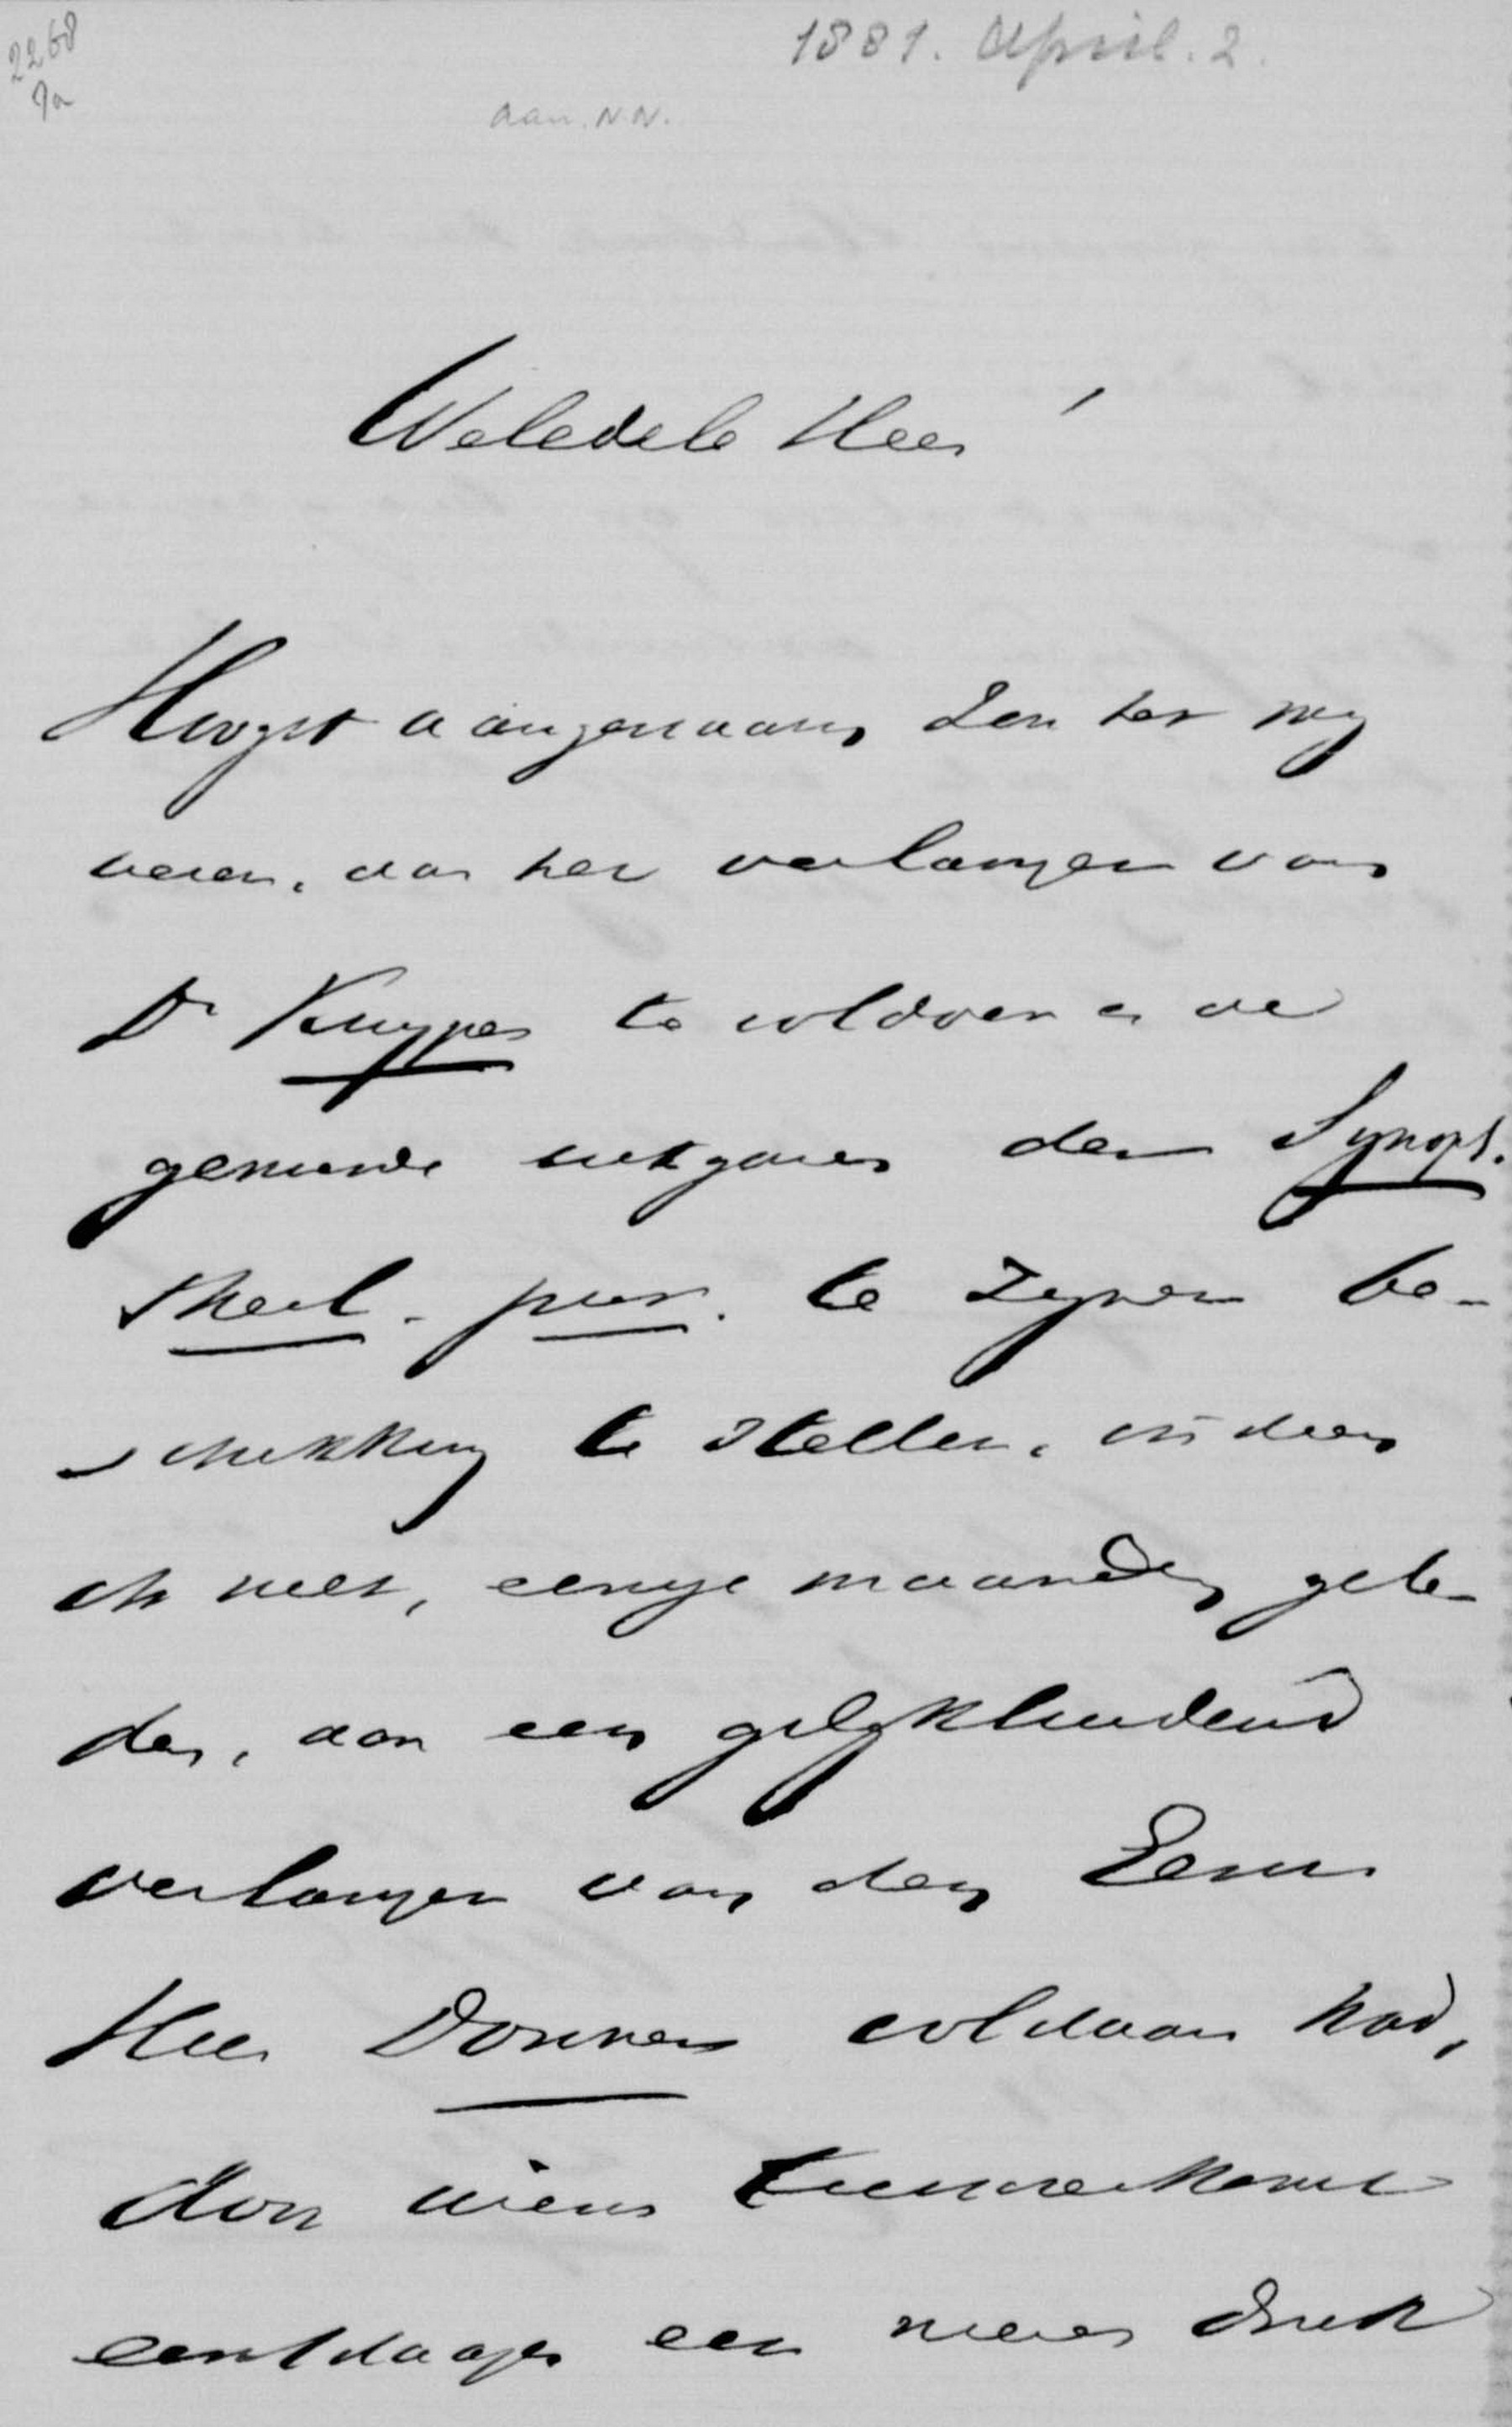 2268
9a
1881. April. 2.
aan. N.N.
Weledele Heer
Hoogst aangenaam zou het my
wezen, aan het verlangen van
Dr Kuyper te voldoen en de
genoemde uitgaven der Synops.
theol. pur. te zynen be-
schikking te stellen, indien
ik niet, eenige maanden gele-
den, aan een gelykluidend
verlangen van den Eerw.
Heer Donner voldaan had,
door wiens
eerstdaags een nieuwe druk